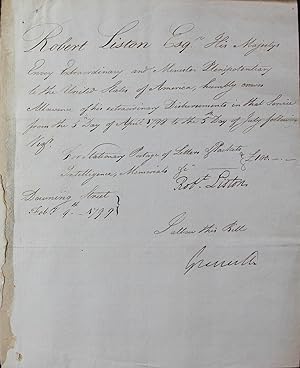 Robert Liston Esqr. His Majestys
Envoy Extraordinary and Minister Plenipotentiary
to the United States of America, humbly craves
Allowance of his extraordinary Disbursements in that Service
from the 5th Day of April 1798 to the 5th Day of July following
Vizt.
For Stationary Postage of Letters & Packets
Intelligence, Memorials &c } £100.—.—
Robt. Liston
Downing Street
Feby 9th.. 1799
I allow this Bill
Grenville